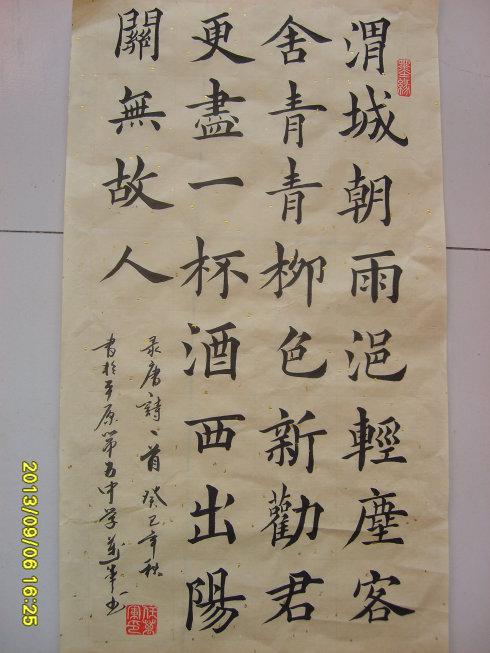 渭城朝雨浥輕塵客
舍青青柳色新勸君
更盡一杯酒西出陽
關無故人
录唐詩一首癸巳年秋
書於平原第五中学
2013/09/06 16:25